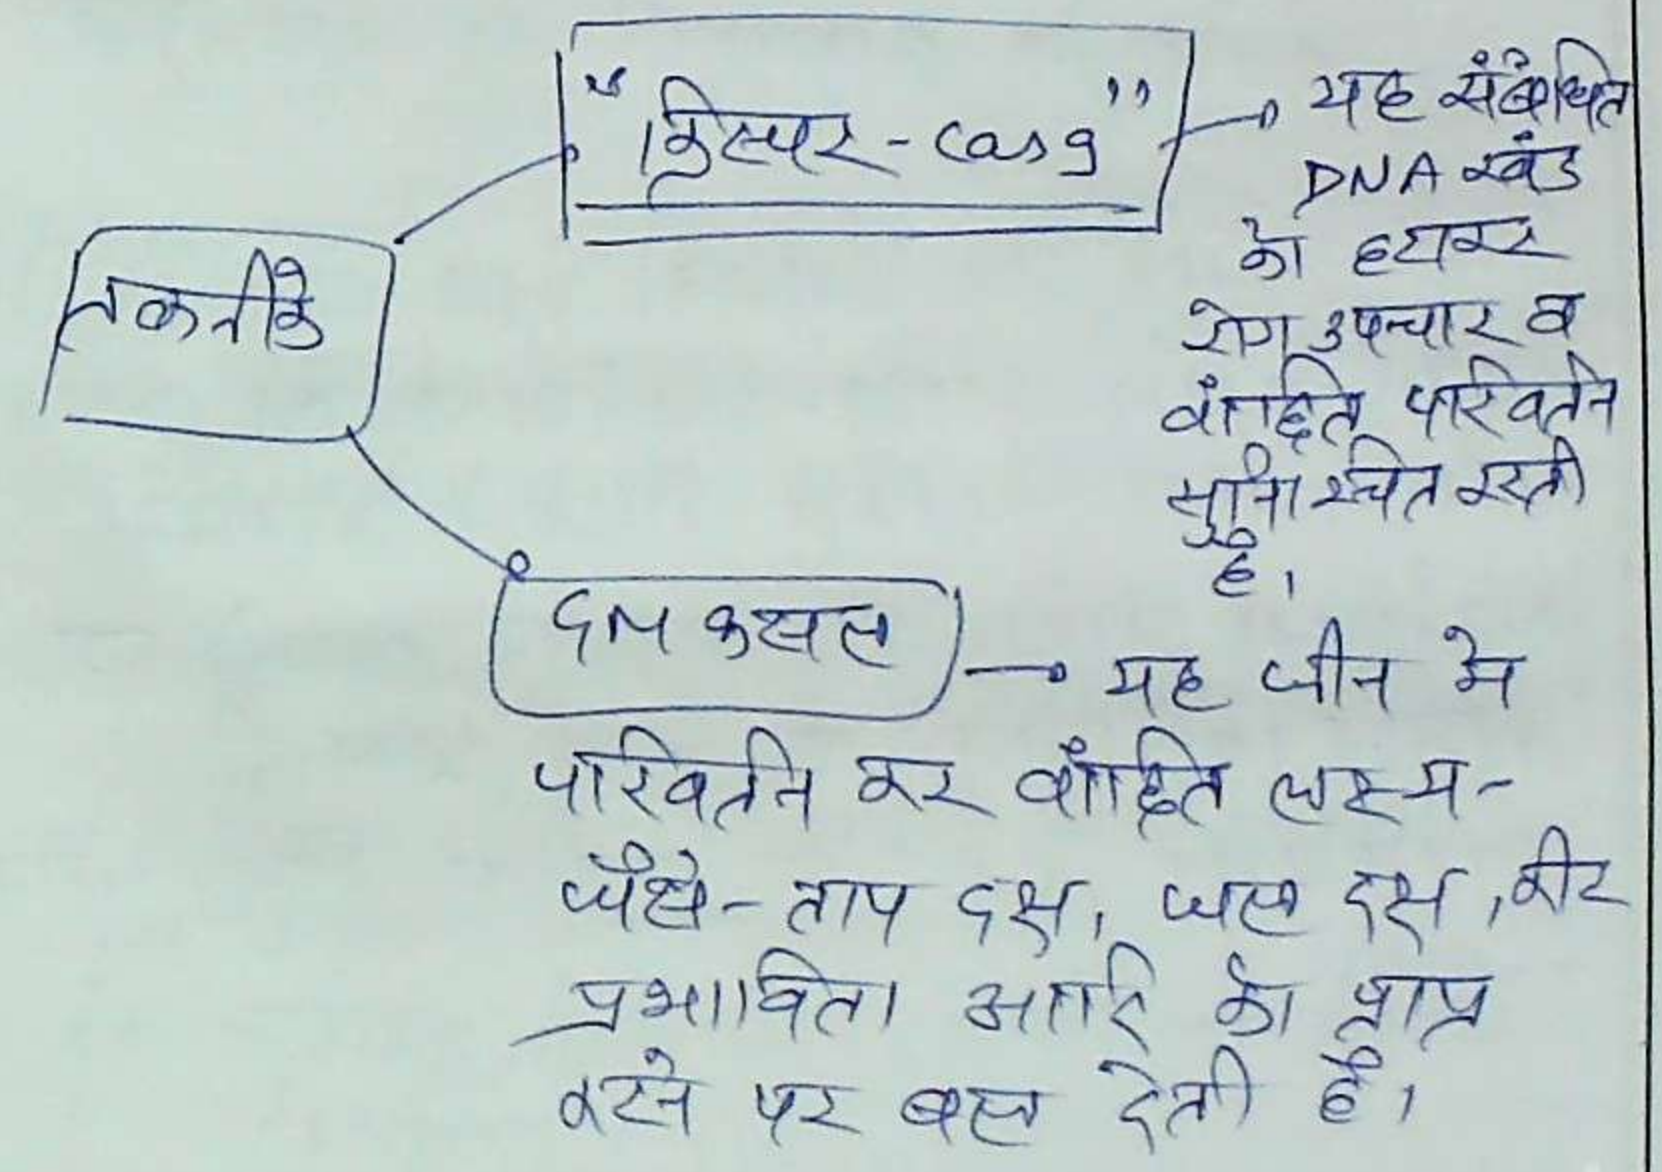 तकनीके
"क्रिस्पर - cas9"
यह संबंधित
DNA खंड
को हटाकर
रोग उपचार व
वांछित परिवर्तन
सुनिश्चित करती
है।
GM फसल
यह जीन मे
परिवर्तन कर वांछित लक्ष्य -
जैसे - ताप दक्ष, जल दक्ष, कीट
प्रभाविता आदि को प्राप्त
करने पर बल देती है।